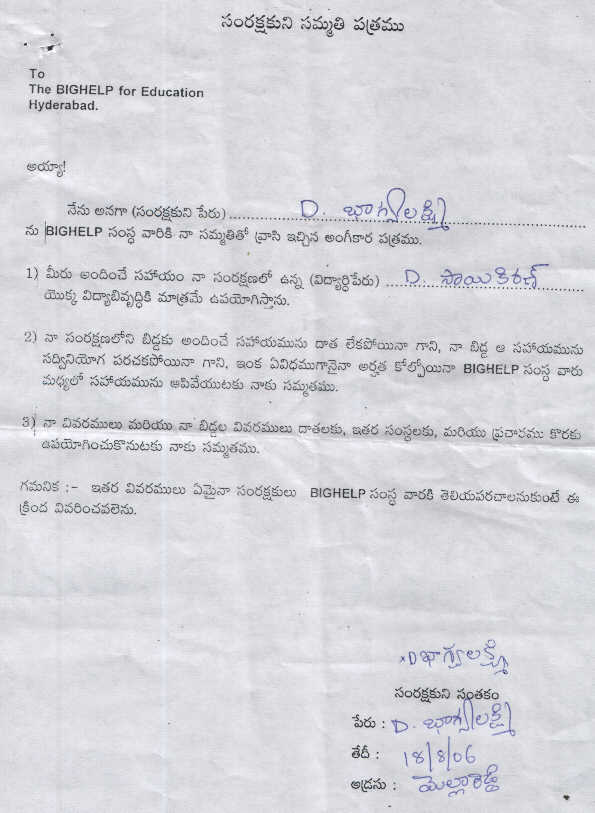 సంరక్షకుని సమ్మతి పత్రము
To
The BIGHELP for Education
Hyderabad.
అయ్యా!
నేను అనగా (సంరక్షకుని పేరు) D. భాగ్యలక్ష్మి
ను BIGHELP సంస్థ వారికి నా సమ్మతితో వ్రాసి ఇచ్చిన అంగీకార పత్రము.
1) మీరు అందించే సహాయం నా సంరక్షణలో ఉన్న (విద్యార్థిపేరు) D. సాయికిరణ్
యొక్క విద్యాబివృద్ధికి మాత్రమే ఉపయోగిస్తాను.
2) నా సంరక్షణలోని బిడ్డకు అందించే సహాయమును దాత లేకపోయినా గాని, నా బిడ్డ ఆ సహాయమును
సద్వినియోగ పరచకపోయినా గాని, ఇంక ఏవిధముగానైనా అర్హత కోల్పోయినా BIGHELP సంస్థ వారు
మధ్యలో సహాయమును ఆపివేయుటకు నాకు సమ్మతము.
3) నా వివరములు మరియు నా బిడ్డల వివరములు దాతలకు, ఇతర సంస్థలకు, మరియు ప్రచారము కొరకు
ఉపయోగించుకొనుటకు నాకు సమ్మతము.
గమనిక :- ఇతర వివరములు ఏమైనా సంరక్షకులు BIGHELP సంస్థ వారకి తెలియపరచాలనుకుంటే ఈ
క్రింద వివరించవలెను.
x D భాగ్యలక్ష్మి
సంరక్షకుని సంతకం
పేరు : D. భాగ్యలక్ష్మి
తేదీ : 18/8/06
అడ్రసు :